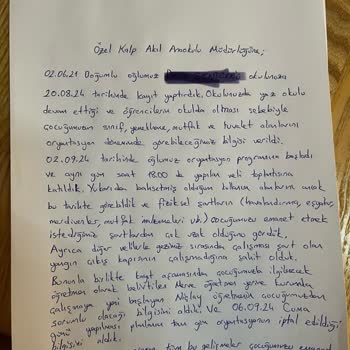 Özel Kalp Akıl Anaokulu Müdürlüğüne;
02.06.21 Doğumlu oğlumuz okulunuza
20.08.24 tarihinde kayıt yaptırdık. Okulunuzda yaz okulu
devam ettiği ve öğrencilerin okulda olması sebebiyle
çocuğumuzun sınıf, yemekhane, mutfak ve tuvalet alanlarını
oryantasyon döneminde görebileceğimiz bilgisi verildi.
02.09.24 tarihinde oğlumuz oryantasyon programına başladı
ve aynı gün saat 18.00 de yapılan veli toplantısına
katıldık. Yukarıdan bahsetmiş olduğum alanlara ancak
bu tarihte görebildik ve fiziksel şartların (havalandırma, eşyalar
merdivenler, mutfak vb.) çocuğumuzu emanet etmek
istediğimiz şartlardan çok uzak olduğunu gördük.
Ayrıca diğer velilerle gezimiz sırasında çalışması şart olan
yangın çıkış kapısının çalışmadığına şahit olduk.
Bununla birlikte kayıt aşamasında çocuğumuzla ilgilenecek
öğretmen olarak belirtilen Merve öğretmen yerine kurumda
çalışmaya yeni başlayan Nilay öğretmenin çocuğumuzdan
sorumlu olacağı bilgisini aldık. Ve 06.09.24 Cuma
günü yapılması planlanan tam gün oryantasyonun iptal edildiği
bilgisini aldık.
tüm bu gelişmeler çocuğumuzu emanet